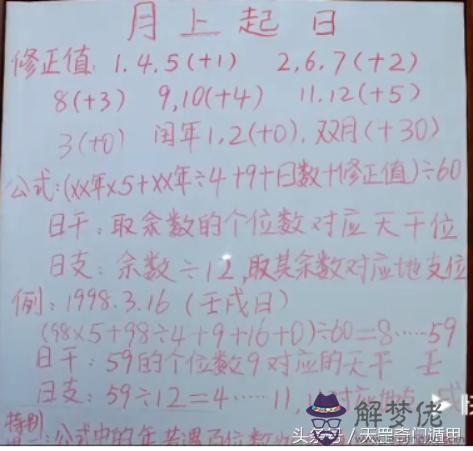 月上起日
修正值: 1.4.5(+1) 2,6,7(+2)
8(+3) 9,10(+4) 11.12(+5)
3(+0) 闰年1,2(+0). 双月(+30)
公式:(XX年×5+XX年÷4+9+日数+修正值)÷60
日干: 取余数的个位数对应天干位
日支: 余数÷12,取其余数对应地支位
例: 1998.3.16 (壬戌日)
(98×5+98÷4+9+16+0)÷60=8……59
日干: 59的个位数9对应的天干 壬
日支: 59÷12=4……11,
特别
:公式中的年若遇百位数
解梦佬
头条号/天罡奇门遁甲